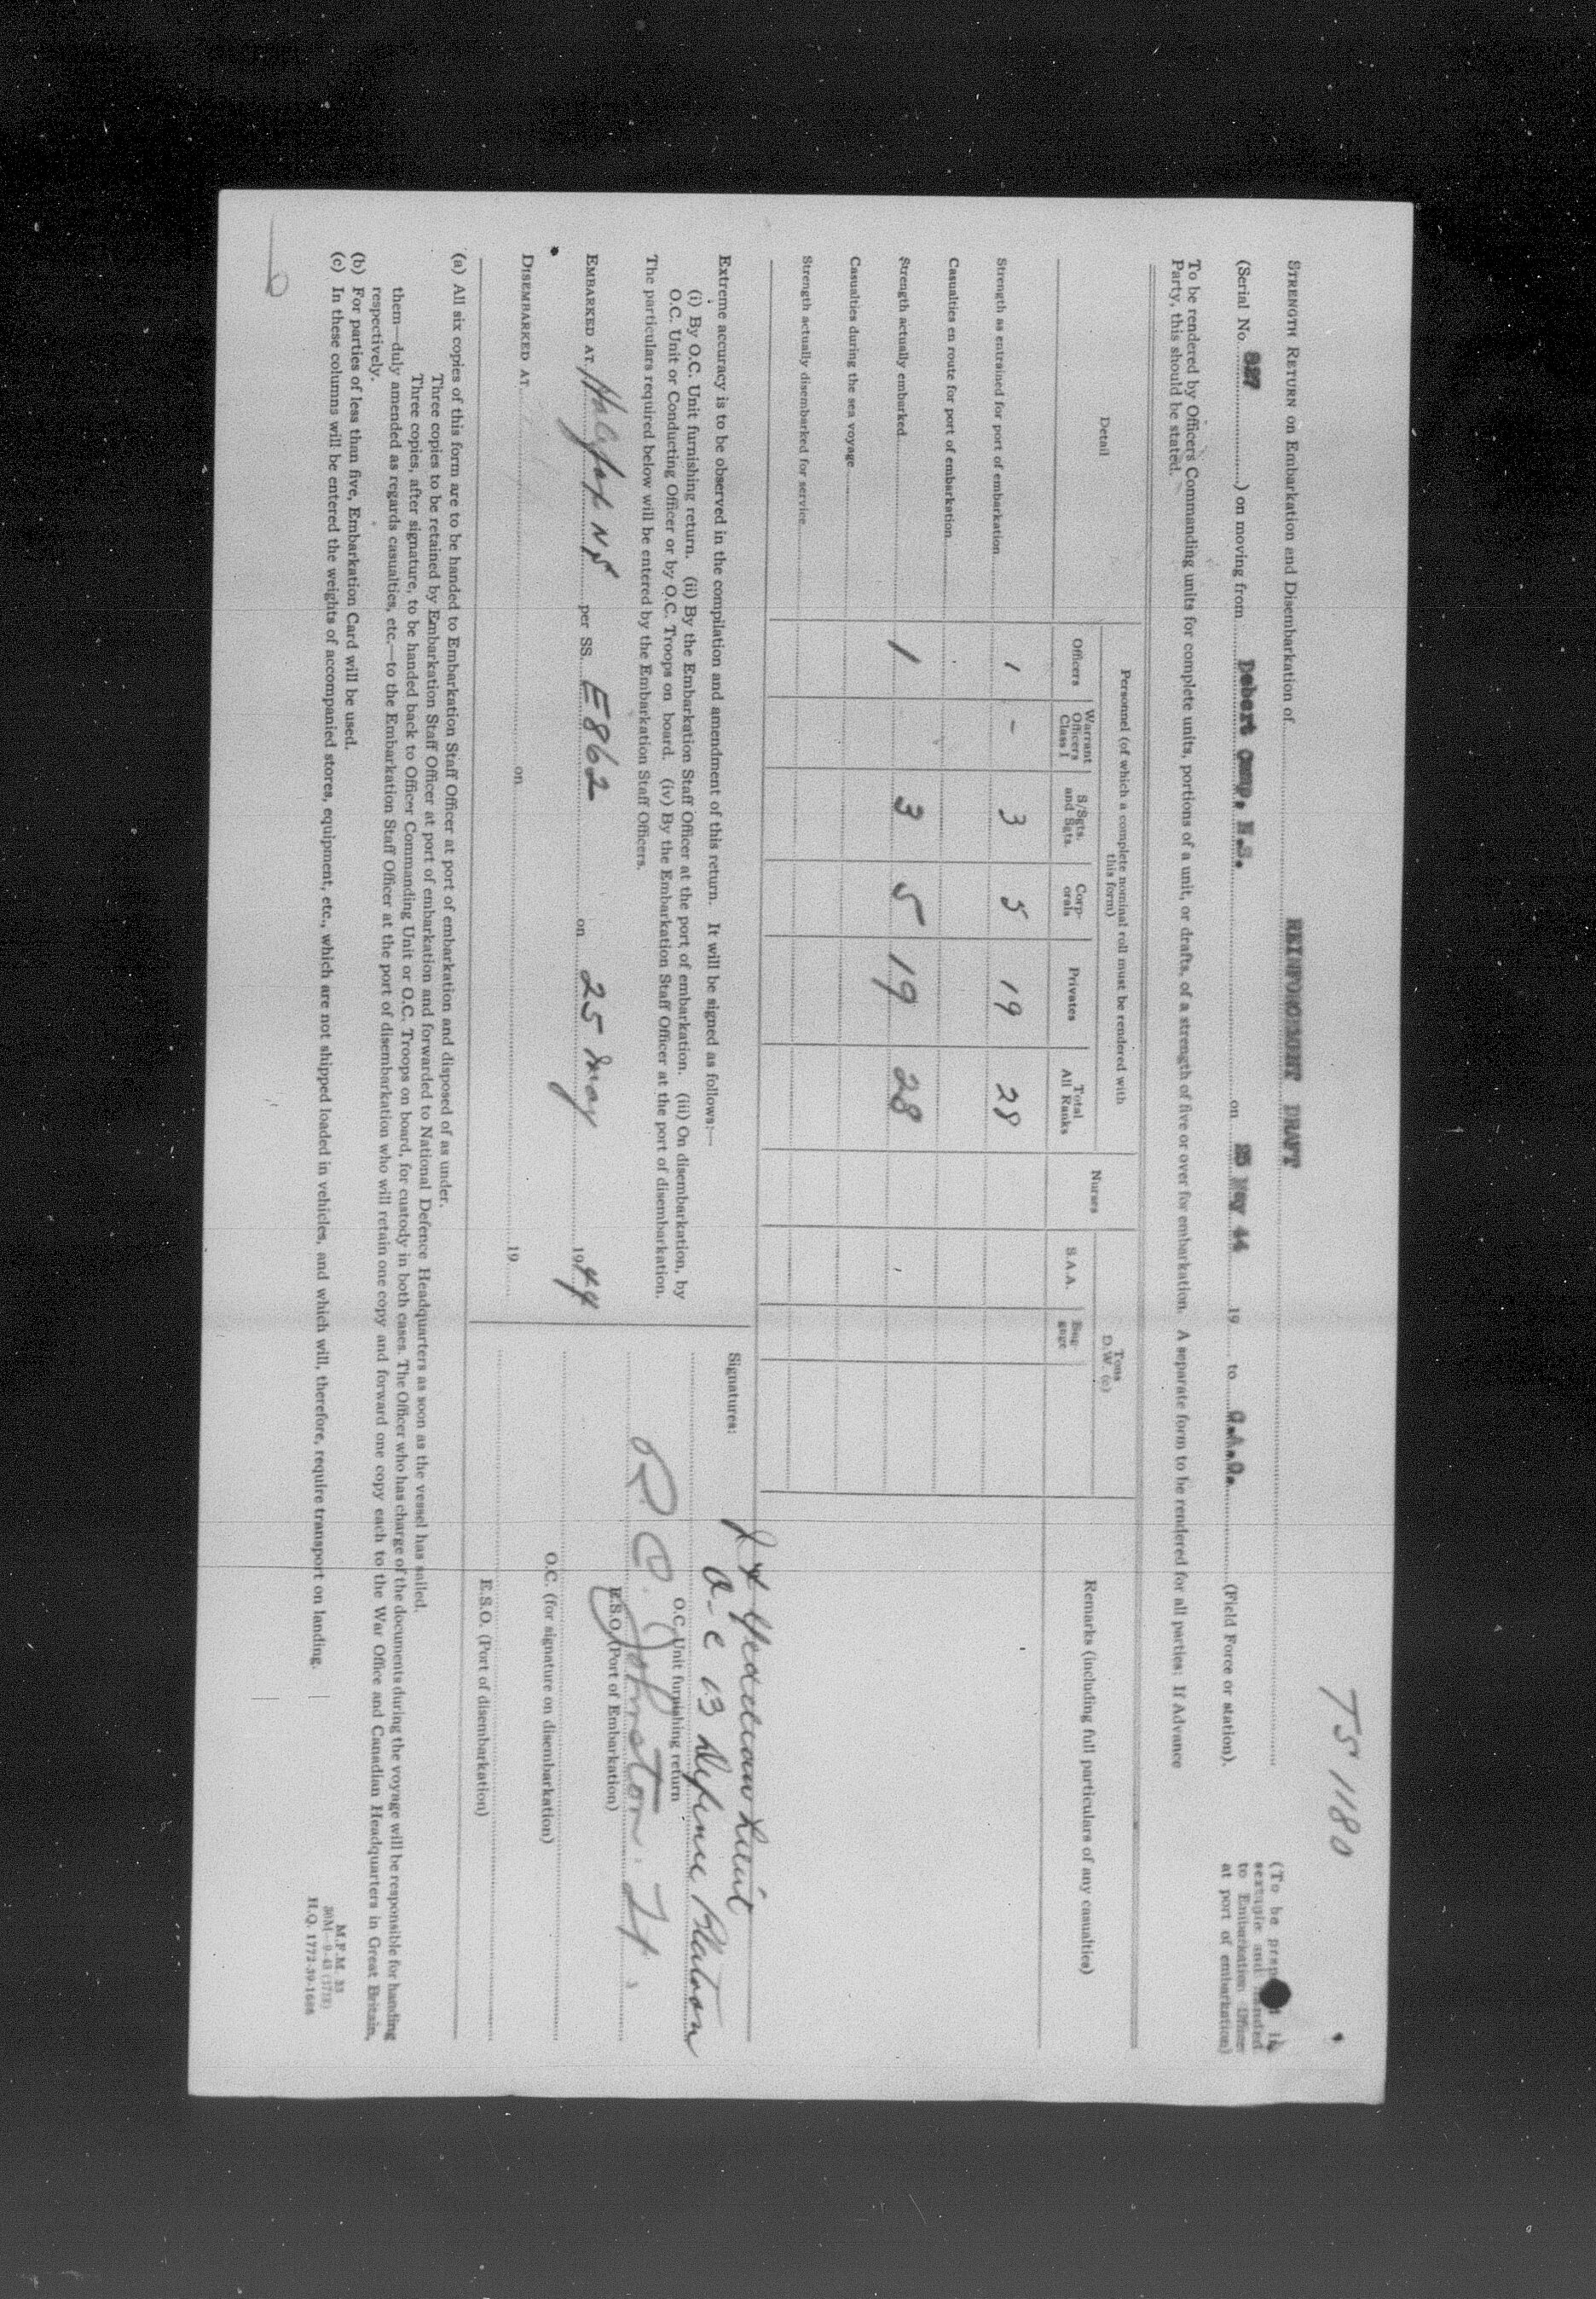 TS 1180
STRENGTH RETURN on Embarkation and Disembarkation of REINFORCEMENT DRAFT
(To be in
sextuple and handed
to Embarkation Officer
at port of embarkation)
(Serial No. 827) on moving from Debert Camp, N.S. on 25 May 44 19 to (Field Force or station).
To be rendered by Officers Commanding units for complete units, portions of a unit, or drafts, of a strength of five or over for embarkation. A separate form to be rendered for all parties: If Advance
Party, this should be stated.
Detail
Personnel (of which a complete nominal roll must be rendered with
this form)
Nurses
Tons
D.W. (c)
Remarks (including full particulars of any casualties)
Officers
Warrant
Officers
Class I
S/Sgts.
and Sgts.
Corp-
orals
Privates
Total
All Ranks
S.A.A.
Bag-
gage
Strength as entrained for port of embarkation 1 - 3 5 19 28
Casualties en route for port of embarkation
Strength actually embarked 1 3 5 19 28
Casualties during the sea voyage
Strength actually disembarked for service
Extreme accuracy is to be observed in the compilation and amendment of this return. It will be signed as follows:—
(i) By O.C. Unit furnishing return. (ii) By the Embarkation Staff Officer at the port of embarkation. (iii) On disembarkation, by
O.C. Unit or Conducting Officer or by O.C. Troops on board. (iv) By the Embarkation Staff Officer at the port of disembarkation.
The particulars required below will be entered by the Embarkation Staff Officers.
EMBARKED AT Halifax NS per SS. E862 on 25 May 1944
DISEMBARKED AT on 19
Signatures:
Lieut
13 Defence Platoon
O.C. Unit furnishing return
Johnston
E.S.O. (Port of Embarkation)
O.C. (for signature on disembarkation)
E.S.O. (Port of disembarkation)
(a) All six copies of this form are to be handed to Embarkation Staff Officer at port of embarkation and disposed of as under.
Three copies to be retained by Embarkation Staff Officer at port of embarkation and forwarded to National Defence Headquarters as soon as the vessel has sailed.
Three copies, after signature, to be handed back to Officer Commanding Unit or O.C. Troops on board, for custody in both cases. The Officer who has charge of the documents during the voyage will be responsible for handing
them—duly amended as regards casualties, etc.—to the Embarkation Staff Officer at the port of disembarkation who will retain one copy and forward one copy each to the War Office and Canadian Headquarters in Great Britain,
respectively.
(b) For parties of less than five, Embarkation Card will be used.
(c) In these columns will be entered the weights of accompanied stores, equipment, etc., which are not shipped loaded in vehicles, and which will, therefore, require transport on landing.
M.F.M. 33
50M—9-43 (3738)
H.Q. 1772-39-1608